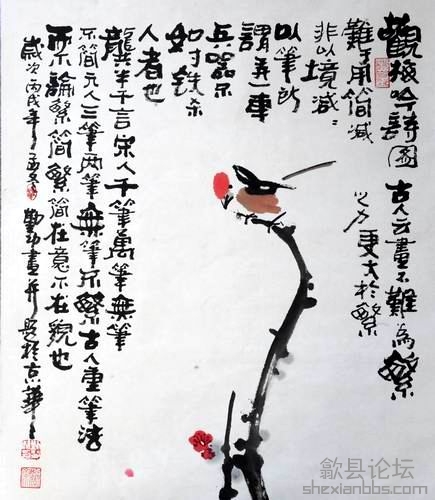 觀梅吟詩圖 古人云畫不難為繁
難于用簡減 之力更大於繁
非以境減〻
以筆所
謂弄一車
兵器不
如寸铁杀
人者也
龔半千言宋人千筆萬筆無筆
不簡元人三筆兩筆無筆不繁古人重筆法
而不論繁簡繁簡在意不在貌也
歲次丙戌年之孟冬 畫並題於京華
歙县论坛
shexianbbs.com